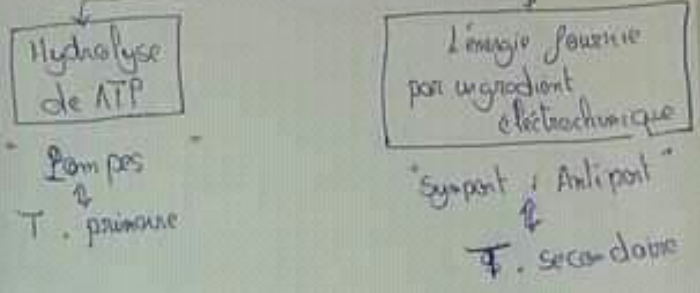 Hydrolyse
de ATP
"Pompes"
⇕
T. primaire
L'énergie fournie
par un gradient
électrochimique
"Symport ; Antiport"
⇕
T. secondaire